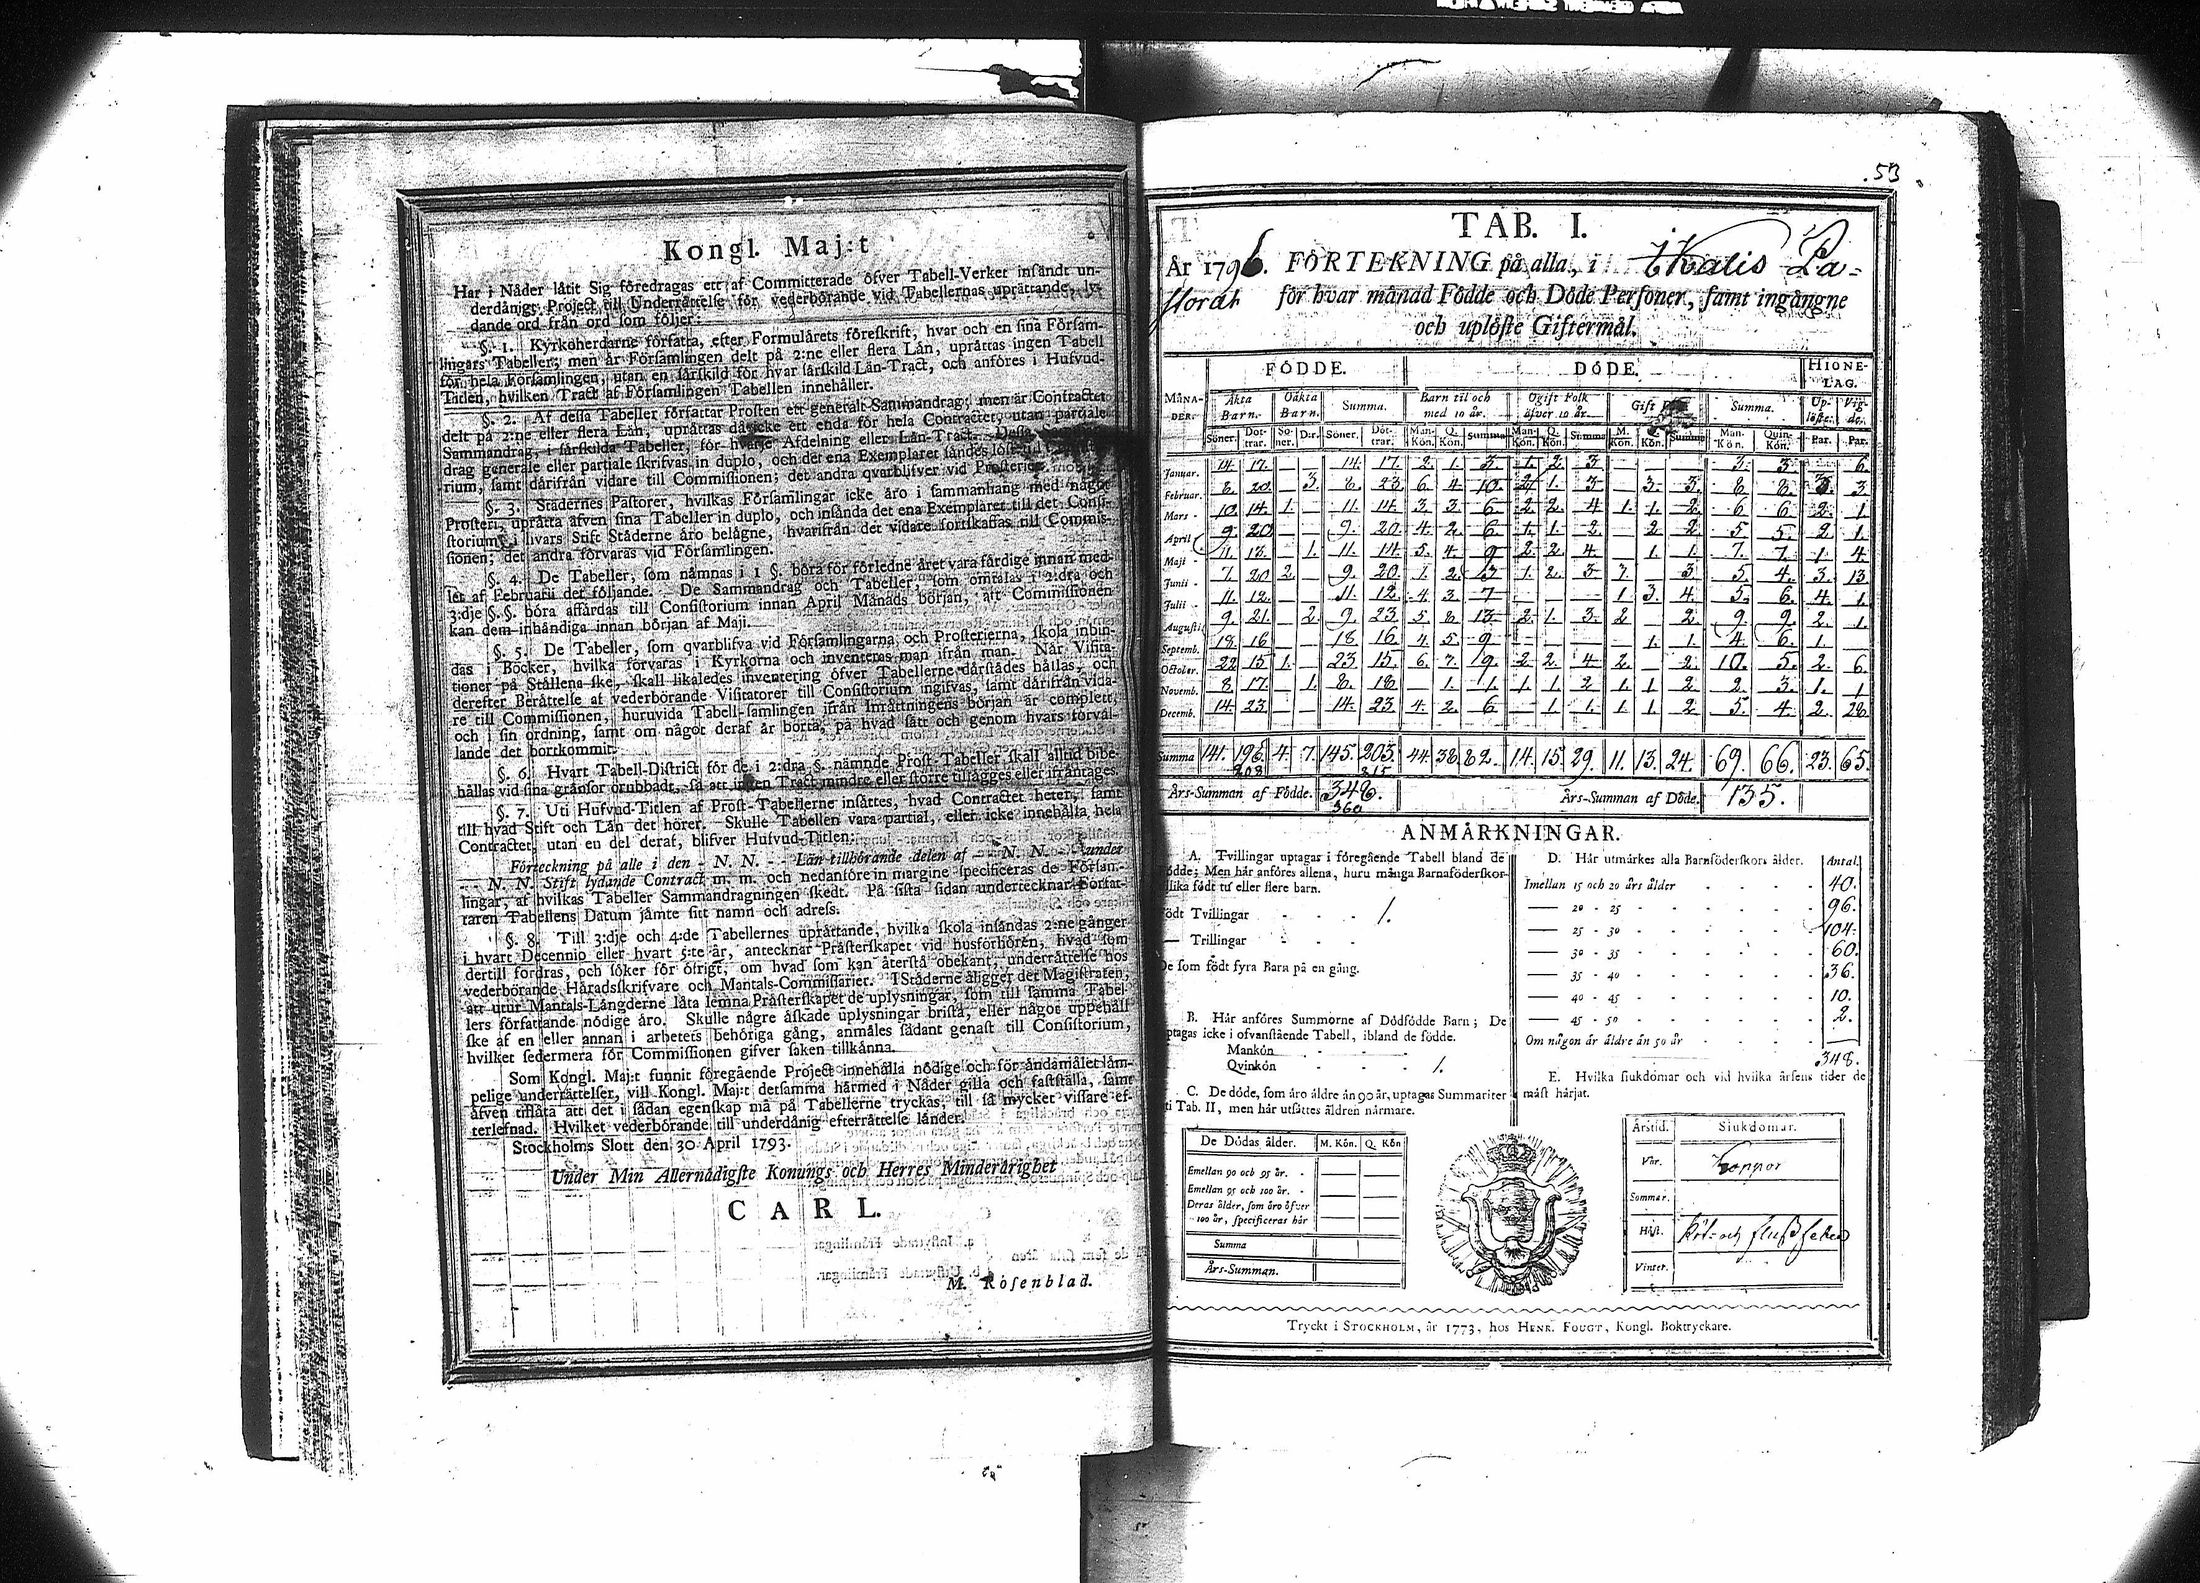 Kongl. Maj:t
Har i Nåder låtit Sig föredragas ett af Committerade öfver Tabell-Verket insändt un-
derdånigt Project till Underrättelse för vederbörande vid Tabellernas uprättande, ly-
dande ord från ord som följer:
§. 1. Kyrkoherdarne författa, efter Formulärets föreskrift, hvar och en sina Försam-
lingars Tabeller; men är Församlingen delt på 2:ne eller flera Län, uprättas ingen Tabell
för hela Församlingen, utan en särskild för hvar särskild Län-Tract, och anföres i Hufvud-
Titlen, hvilken Tract af Församlingen Tabellen innehåller.
§. 2. Af dessa Tabeller författar Prosten ett generalt Sammandrag; men är Contractet
delt på 2:ne eller flera Län, uprättas då icke ett enda för hela Contractet, utan partiale
Sammandrag, i särskilda Tabeller, för hvarje Afdelning eller Län-Tract. Dessa
drag generale eller partiale skrifvas in duplo, och det ena Exemplaret sändes
rium, samt därifrån vidare till Commissionen; det andra qvarblifver vid Prosteriet.
§. 3. Städernes Pastorer, hvilkas Församlingar icke äro i sammanhang med något
Prosteri, uprätta äfven sina Tabeller in duplo, och insända det ena Exemplaret till det Consi-
storium, i hvars Stift Städerne äro belägne, hvarifrån det vidare fortskaffas till Commis-
sionen; det andra förvaras vid Församlingen.
§. 4. De Tabeller, som nämnas i 1 §. böra för förledne året vara färdige innan med-
let af Februarii det följande. De Sammandrag och Tabeller, som omtalas i 2:dra och
3:dje §.§. böra affärdas till Consistorium innan April Månads början, att Commissionen
kan dem inhändiga innan början af Maji.
§. 5. De Tabeller, som qvarblifva vid Församlingarna och Prosterierna, skola inbin-
das i Böcker, hvilka förvaras i Kyrkorna och inventeras man ifrån man. När Visita-
tioner på Ställena ske, skall likaledes inventering öfver Tabellerne därstädes hållas, och
derefter Berättelse af vederbörande Visitatorer till Consistorium ingifvas, samt därifrån vida-
re till Commissionen, huruvida Tabell-samlingen ifrån Inrättningens början är complett,
och i sin ordning, samt om något deraf är borta, på hvad sätt och genom hvars förvål-
lande det bortkommit.
§. 6. Hvart Tabell-District för de i 2:dra §. nämnde Prost-Tabeller skall alltid bibe-
hållas vid sina gränsor orubbadt, så att ingen Tract mindre eller större tillägges eller ifråntages.
§. 7. Uti Hufvud-Titlen af Prost-Tabellerne insättes, hvad Contractet heter, samt
till hvad Stift och Län det hörer. Skulle Tabellen vara partial, eller icke innehålla hela
Contractet, utan en del deraf, blifver Hufvud-Titlen:
Förteckning på alle i den - N. N. - - Län tillhörande delen af - - N. N. - - under
- - N. N. Stift lydande Contract m. m. och nedanföre in margine specificeras de Försam-
lingar, af hvilkas Tabeller Sammandragningen skedt. På sista sidan undertecknar Förfat-
taren Tabellens Datum jämte sitt namn och adress.
§. 8. Till 3:dje och 4:de Tabellernes uprättande, hvilka skola insändas 2:ne gånger
i hvart Decennio eller hvart 5:te år, antecknar Prästerskapet vid husförhören, hvad som
dertill fordras, och söker för öfrigt, om hvad som kan återstå obekant, underrättelse hos
vederbörande Häradsskrifvare och Mantals-Commissarier. I Städerne åligger det Magistraten,
att utur Mantals-Längderne låta lemna Prästerskapet de uplysningar, som till samma Tabel-
lers författande nödige äro. Skulle någre äskade uplysningar brista, eller något uppehåll
ske af en eller annan i arbetets behöriga gång, anmäles sådant genast till Consistorium,
hvilket sedermera för Commissionen gifver saken tillkänna.
Som Kongl. Maj:t funnit föregående Project innehålla nödige och för ändamålet läm-
pelige underrättelser, vill Kongl. Maj:t detsamma härmed i Nåder gilla och fastställa, samt
äfven tillåta att det i sådan egenskap må på Tabellerne tryckas, till så mycket vissare ef-
terlefnad. Hvilket vederbörande till underdånig efterrättelse länder.
Stockholms Slott den 30 April 1793.
Under Min Allernådigste Konungs och Herres Minderårighet
CARL.
M. Rosenblad.
53
TAB. I.
År 1796. FÖRTEKNING på alla, i Ithalis Pa-
storat för hvar månad Födde och Döde Personer, samt ingångne
och uplöste Giftermål.
FÖDDE. DÖDE. HIONE-LAG.
MÅNA-DER. Äkta Barn. Oäkta Barn. Summa. Barn til och med 10 år. Ogift Folk öfver 10 år. Gift Summa. Up-löste. Vig-de.
Söner. Döt-trar. Sö-ner. D:r. Söner. Döt-trar. Man-Kön. Q. Kön. Summa Man-Kön. Q. Kön. Summa M. Kön. Q. Kön. Summa Man-Kön. Quin-Kön. Par. Par.
Januar. 14. 17. — — 14. 17. 2. 1. 3. 1. 2. 3 — — — 3. 3. — 6.
Februar. 8. 20. — 3. 8. 23 6. 4 10. 2. 1. 3 — 3. 3. 8 8. 3. 3
Mars 10. 14. 1. — 11. 14 3. 3 6. 2 2 4 1. 1. 2 6 6 2. 1.
April 9. 20 — — 9. 20 4. 2. 6. 1. 1. 2. — 2 2. 5 5. 2 1.
Maji 11. 13. — 1. 11. 14. 5. 4. 9 2. 2. 4 — 1. 1. 7. 7. 1. 4
Junii 7. 20 2. — 9. 20. 1. 2. 3 1. 2. 3 3. — 3. 5. 4. 3. 13
Julii 11. 12. — — 11. 12. 4. 3. 7 — — — 1 3. 4. 5. 6. 4. 1.
Augusti 9. 21. — 2. 9. 23 5. 8 13. 2. 1. 3. 2 — 2. 9 9. 2. 1.
Septemb. 18. 16 — — 18. 16 4. 5. 9 — — — — 1. 1. 4 6. 1. —
October. 22 15 1. — 23 15. 6. 3. 9. 2 2. 4 2. — 2. 10. 5. 2. 6.
Novemb. 8 17. — 1. 8. 18 — 1. 1. 1. 1. 2 1. 1. 2 2. 3. 1. 1
Decemb. 14. 23. — — 14. 23 4. 2. 6 — 1. 1. 1. 1. 2 5. 4. 2. 28
Summa 141. 196. 4. 7. 145. 203. 44. 38. 82. 14. 15. 29. 11. 13. 24. 69. 66. 23. 65.
208 215
Års-Summan af Födde. 348. Års-Summan af Döde. 135.
360
ANMÄRKNINGAR.
A. Tvillingar uptagas i föregående Tabell bland de
födde; Men här anföres allena, huru många Barnaföderskor
slika födt två eller flere barn.
Födt Tvillingar - - - 1.
— Trillingar - -
De som födt fyra Barn på en gång.
B. Här anföres Summorne af Dödfödde Barn; De
uptagas icke i ofvanstående Tabell, ibland de födde.
Mankön - -
Qvinkön - - 1.
C. De döde, som äro äldre än 90 år, uptagas Summariter
i Tab. II, men här utsättes åldren närmare.
De Dödas ålder. M. Kön. Q. Kön
Emellan 90 och 95 år. - — —
Emellan 95 och 100 år. - — —
Deras ålder, som äro öfver
100 år, specificeras här — —
Summa
Års-Summan.
D. Här utmärkes alla Barnföderskors ålder. Antal.
Imellan 15 och 20 års ålder 40.
— 20 - 25 96.
— 25 - 30 104.
— 30 - 35 60.
— 35 - 40 36.
— 40 - 45 10.
— 45 - 50 2.
Om någon är äldre än 50 år —
348.
E. Hvilka siukdomar och vid hvilka årsens tider de
mäst härjat.
Årstid. Siukdomar.
Vår. Koppor
Sommar.
Höst. Röt- och flußfeber
Vinter.
Tryckt i STOCKHOLM, år 1773, hos HENR. FOUGT, Kongl. Boktryckare.